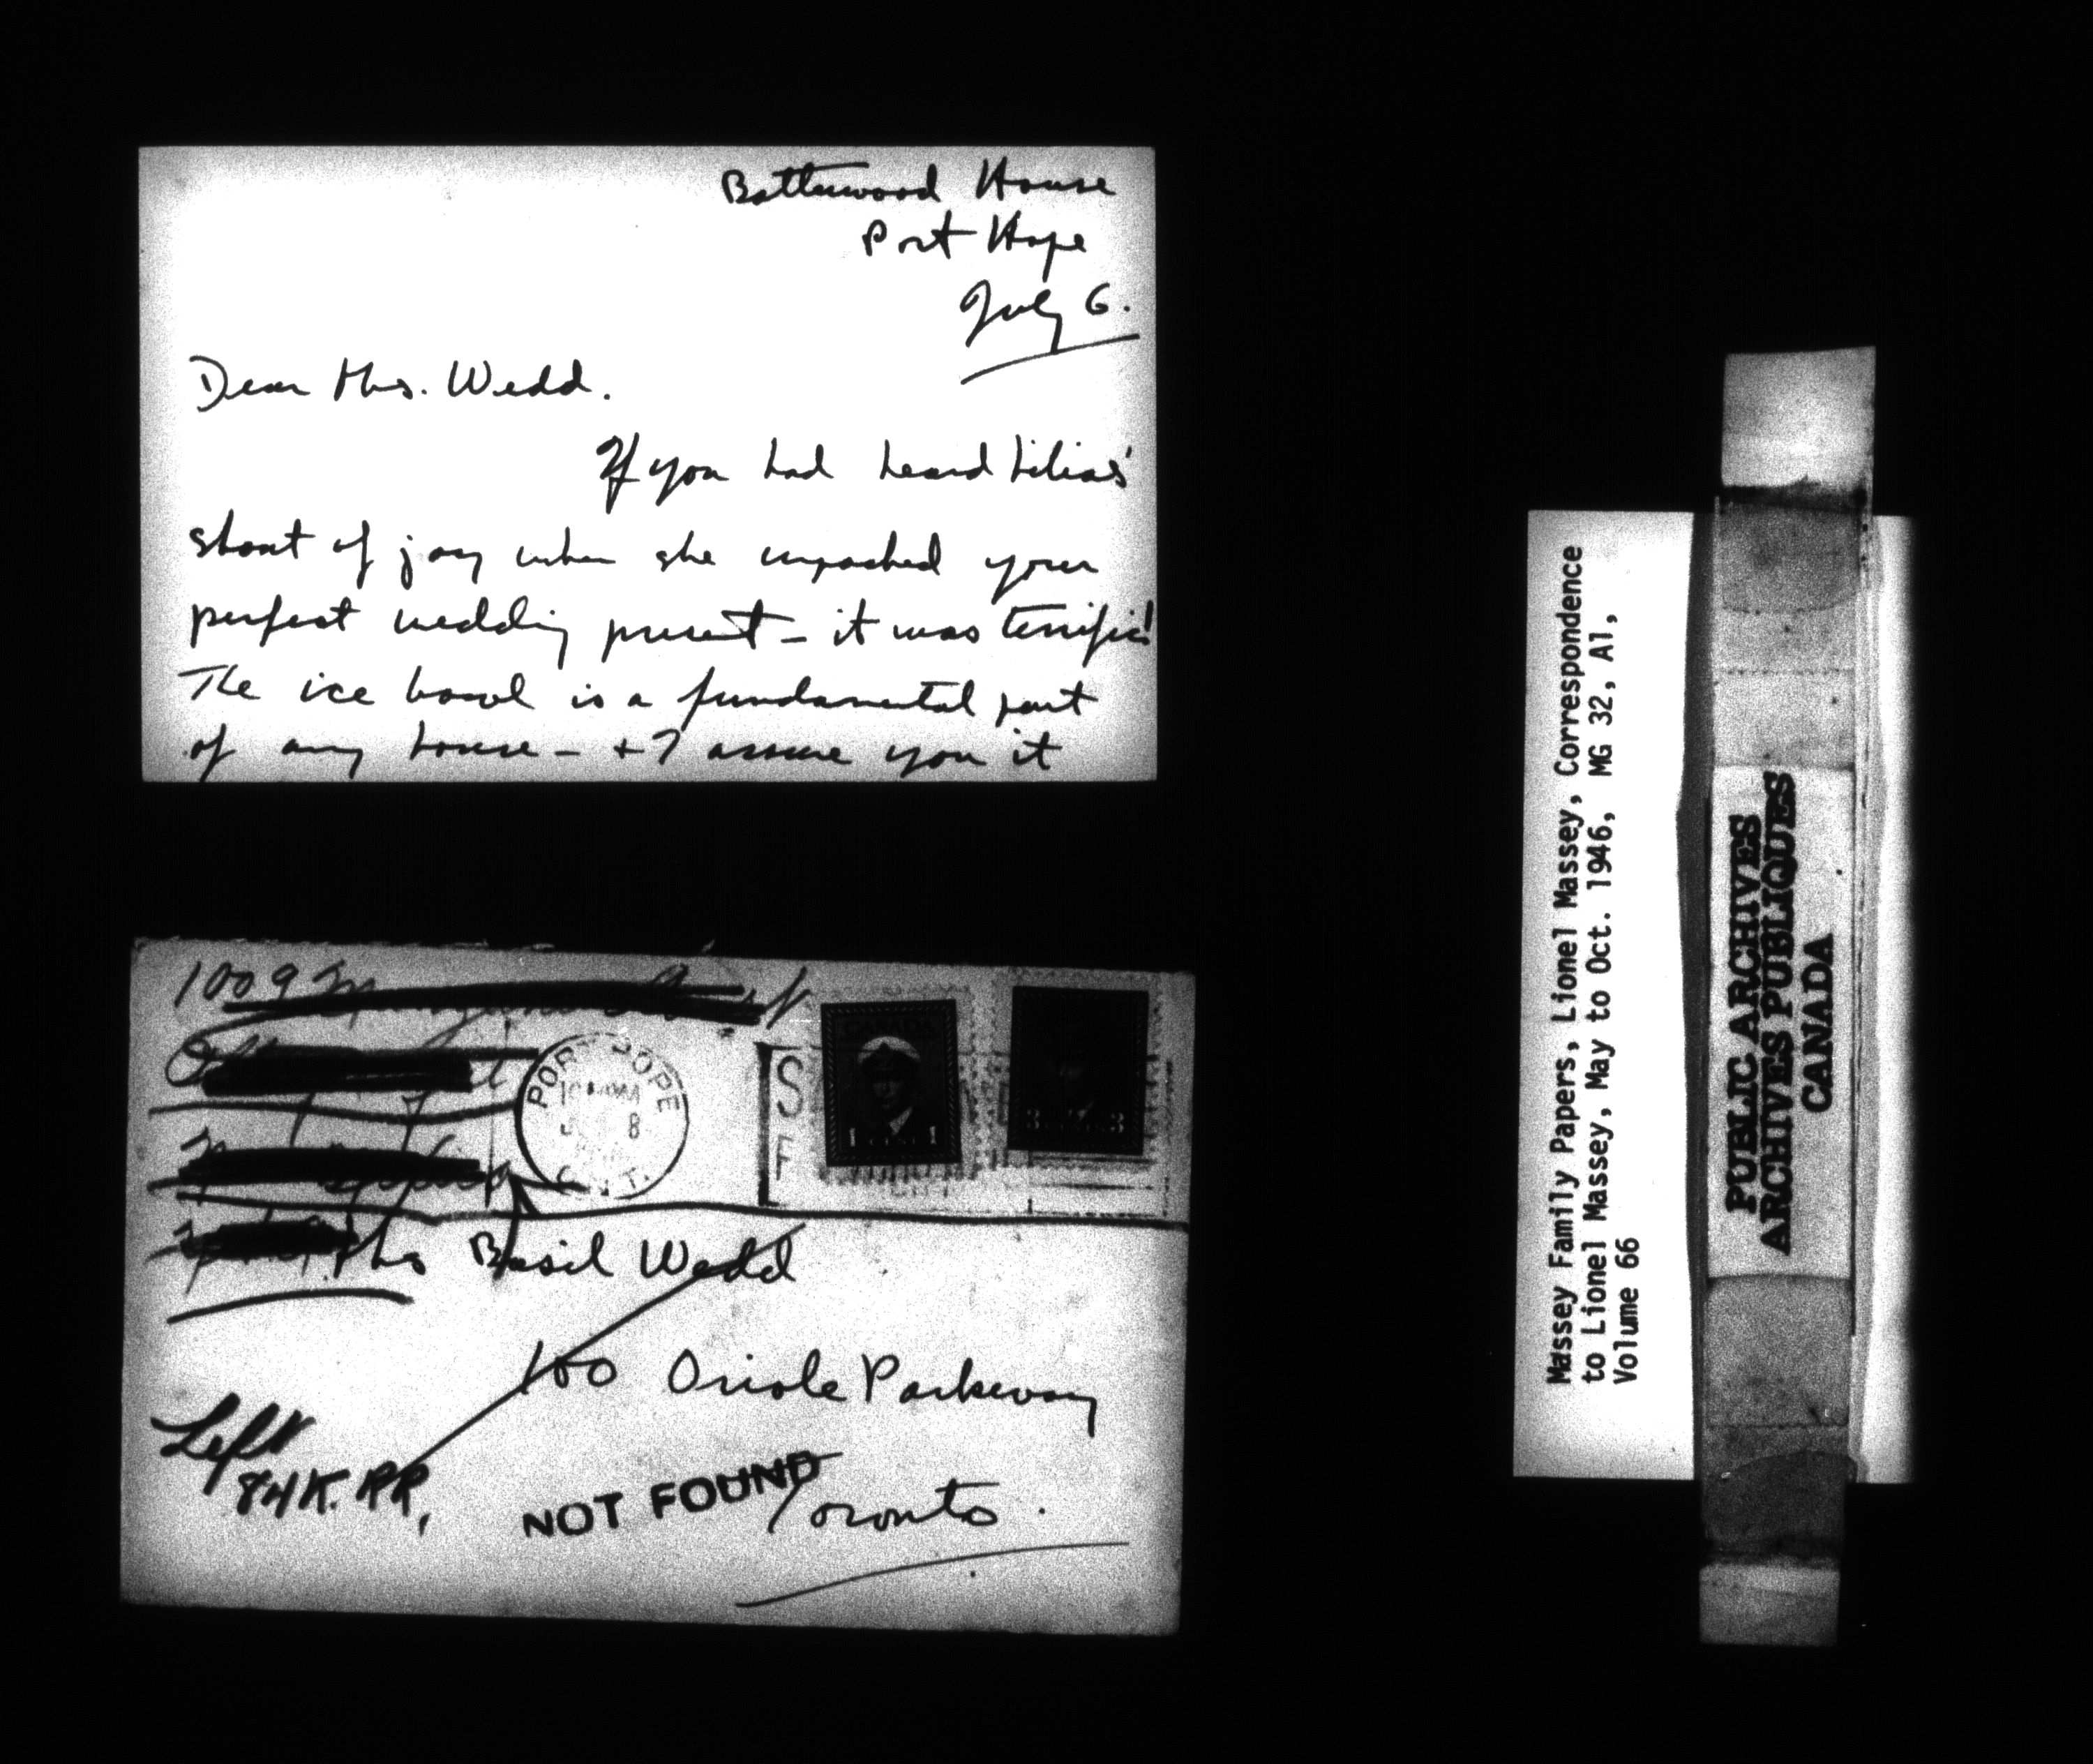 Batterwood House
Port Hope
July 6.
Dear Mrs. Wedd.
If you had heard Lilias'
shout of joy when she unpacked your
perfect wedding present – it was terrific!
The ice bowl is a fundamental part
of any house – + I assure you it
1009
PORT HOPE
8
ONT.
S
F
CANADA
1 CENT 1
3 CENTS 3
Mrs Basil Wedd
100 Oriole Parkway
Left
84K. RR,
NOT FOUND
Toronto.
Massey Family Papers, Lionel Massey, Correspondence
to Lionel Massey, May to Oct. 1946, MG 32, A1,
Volume 66
PUBLIC ARCHIVES
ARCHIVES PUBLIQUES
CANADA